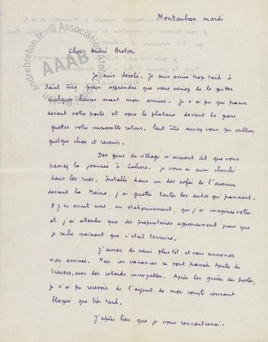 Montauban mardi
Cher André Breton
Je suis désolé. Je suis arrivé trop tard à
Saint Cirq pour apprendre que vous veniez de la quitter
quelques heures avant mon arrivée. Je n'ai pu que passer
devant votre porte, et sous le platane devant la gare
guetter votre impossible retour. Peut être auriez vous pu oublier
quelque chose et revenir.
Des gens du village m'avaient dit que vous
passiez la journée à Cahors. Je vous ai ainsi cherché
dans les rues. Installé dans un des cafés de l'avenue
devant la Mairie, j'ai guetté toutes les autos qui passaient.
Il y en avait une, en stationnement, que j'ai imaginée vôtre
et j'ai attendu que ses propriétaires apparaissent pour que
je sache vraiment que c'était terminé.
J'aurais du venir plutôt et vous annoncer
mon arrivée. Mais ces vacances se sont passées toute de
travers, avec des retards incroyables. Après les grèves des postes,
je n'ai pu recevoir de l'argent de mon compte courant
bloqué que très tard.
J'espère bien que je vous rencontrerai.
andrebreton.fr © Association Atelier André Breton
AAAB